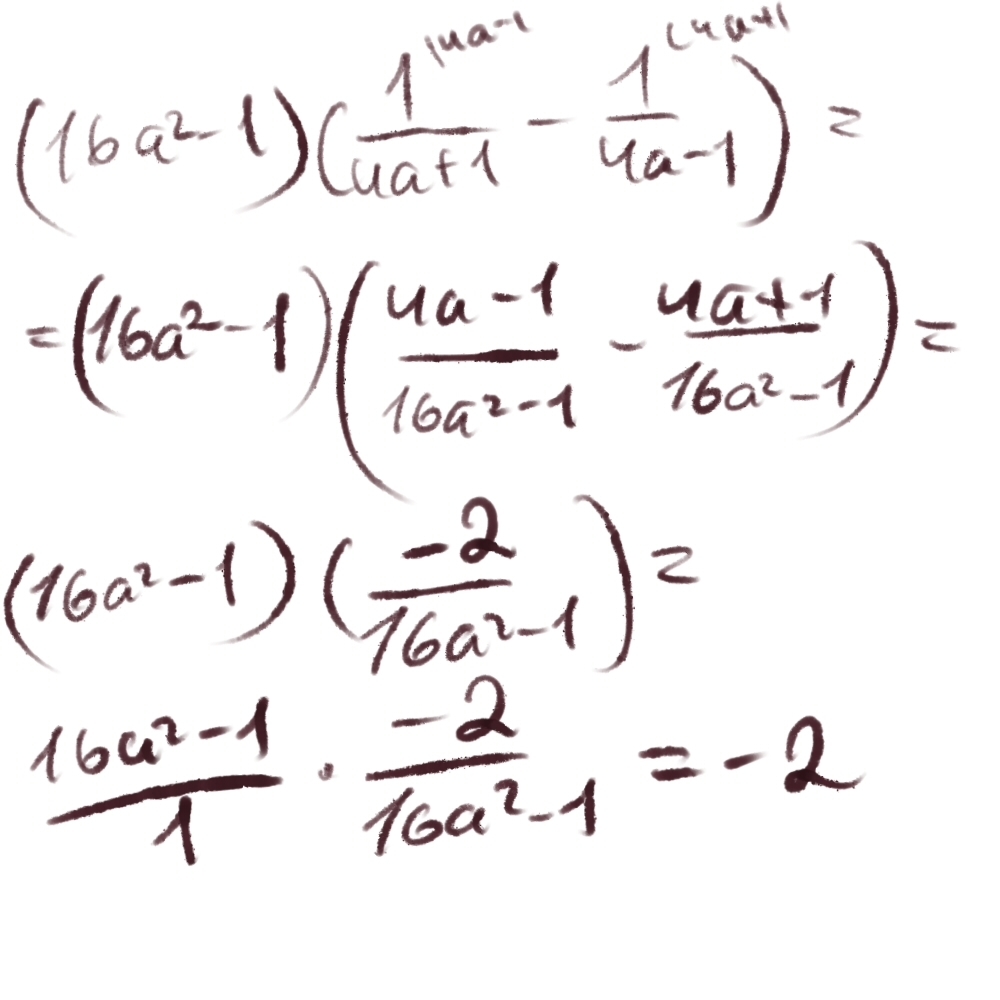 (16a²-1)(1/(4a+1) ^(4a-1 - 1/(4a-1) ^(4a+1) =
=(16a²-1)((4a-1)/(16a²-1) - (4a+1)/(16a²-1)) =
(16a²-1)(-2/(16a²-1)) =
(16a²-1)/1 · -2/(16a²-1) = -2